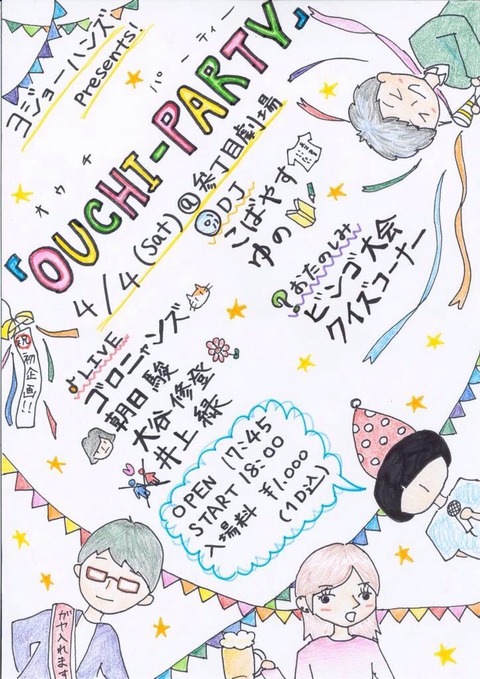 ヨジョーハンズ
presents!
オウチ パーティー
『OUCHI-PARTY』
4/4 (Sat) @ 参丁目劇場
DJ
こばやす
ゆの
おたのしみ
ビンゴ大会
クイズコーナー
LIVE
ゴロニャンズ
朝日駿
大谷修登
井上緑
OPEN 17:45
START 18:00
入場料 ¥1,000
(1D込)
祝
初企画!!
がや入れます